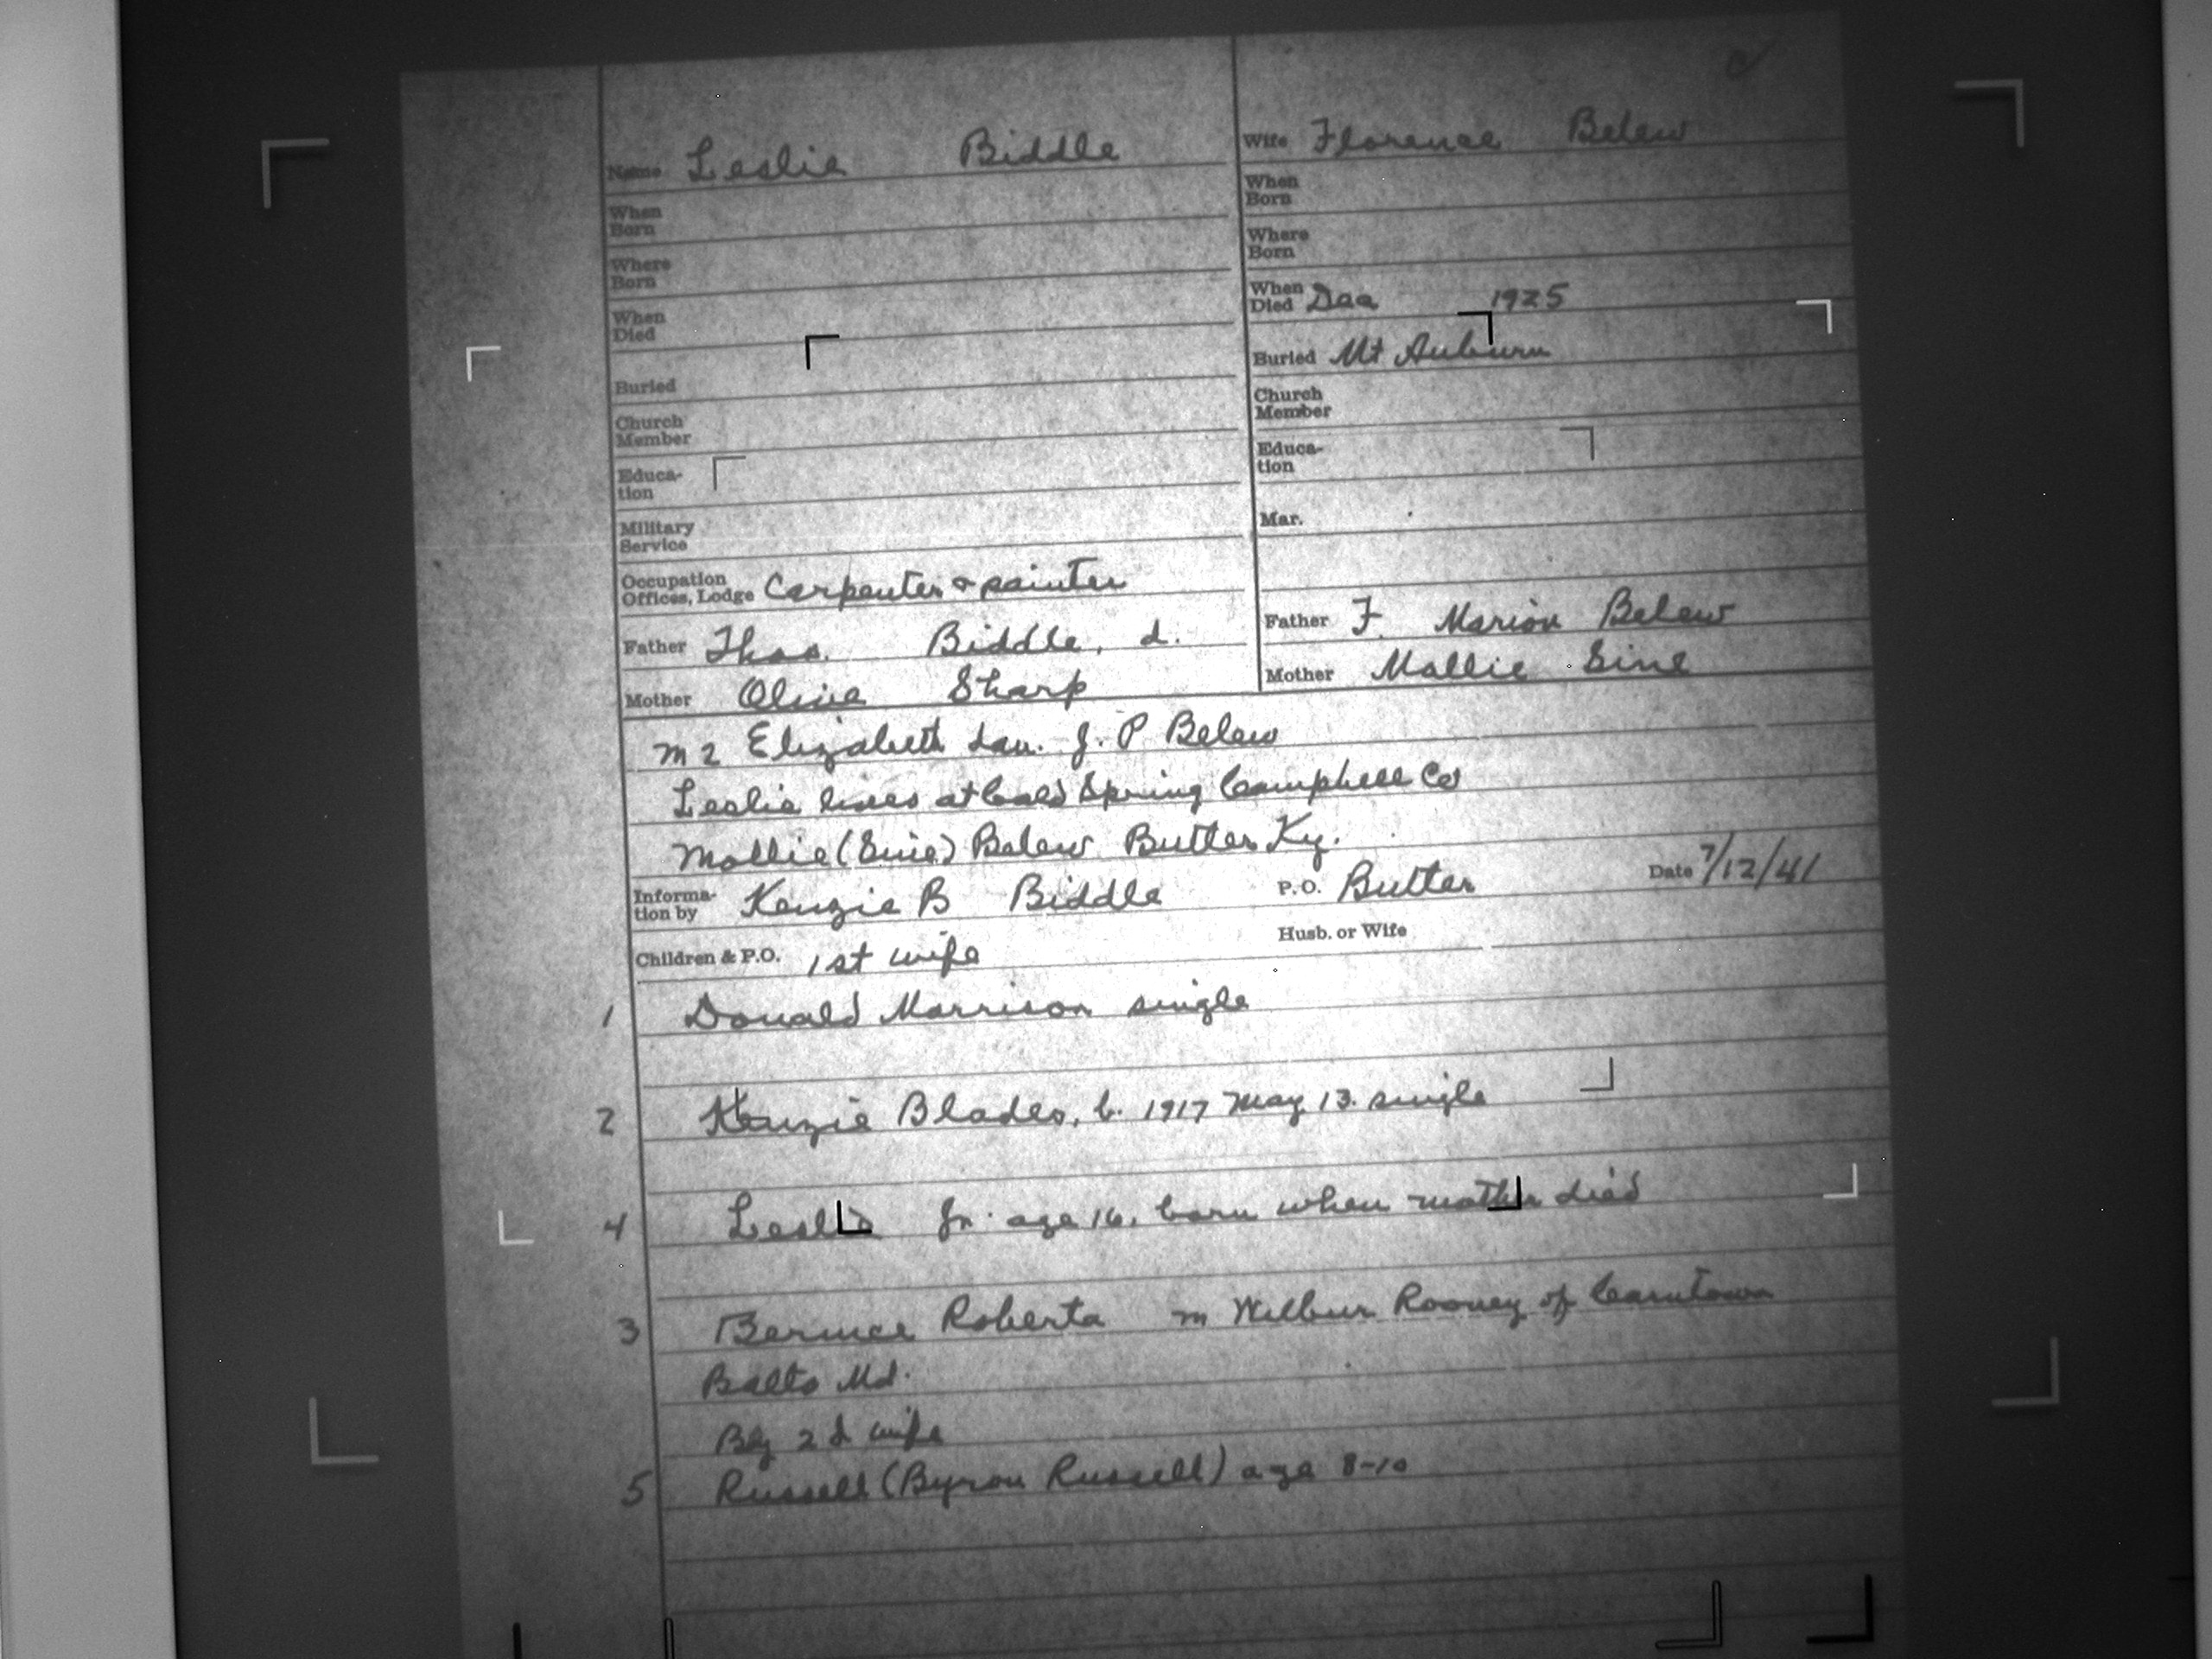 Name Leslie Biddle
When Born
Where Born
When Died
Buried
Church Member
Educa-tion
Military Service
Occupation Offices, Lodge Carpenter & painter
Father Thos. Biddle, d.
Mother Olive Sharp
Wife Florence Belew
When Born
Where Born
When Died Dec 1925
Buried Mt Auburn
Church Member
Educa-tion
Mar.
Father F. Marion Belew
Mother Mollie Sine
m 2 Elizabeth dau. J. P Belew
Leslie lives at Cold Spring Campbell Co
Mollie (Sine) Belew Butler Ky.
Informa-tion by Kenzie B Biddle P.O. Butler Date 7/12/41
Children & P.O. 1st wife Husb. or Wife
1 Donald Morrison single
2 Kenzie Blades, b. 1917 May 13. single
4 Leslie Jr. age 16, born when mother died
3 Bernice Roberta m Wilbur Rooney of Carntown
Balto Md.
By 2d wife
5 Russell (Byron Russell) age 8-10